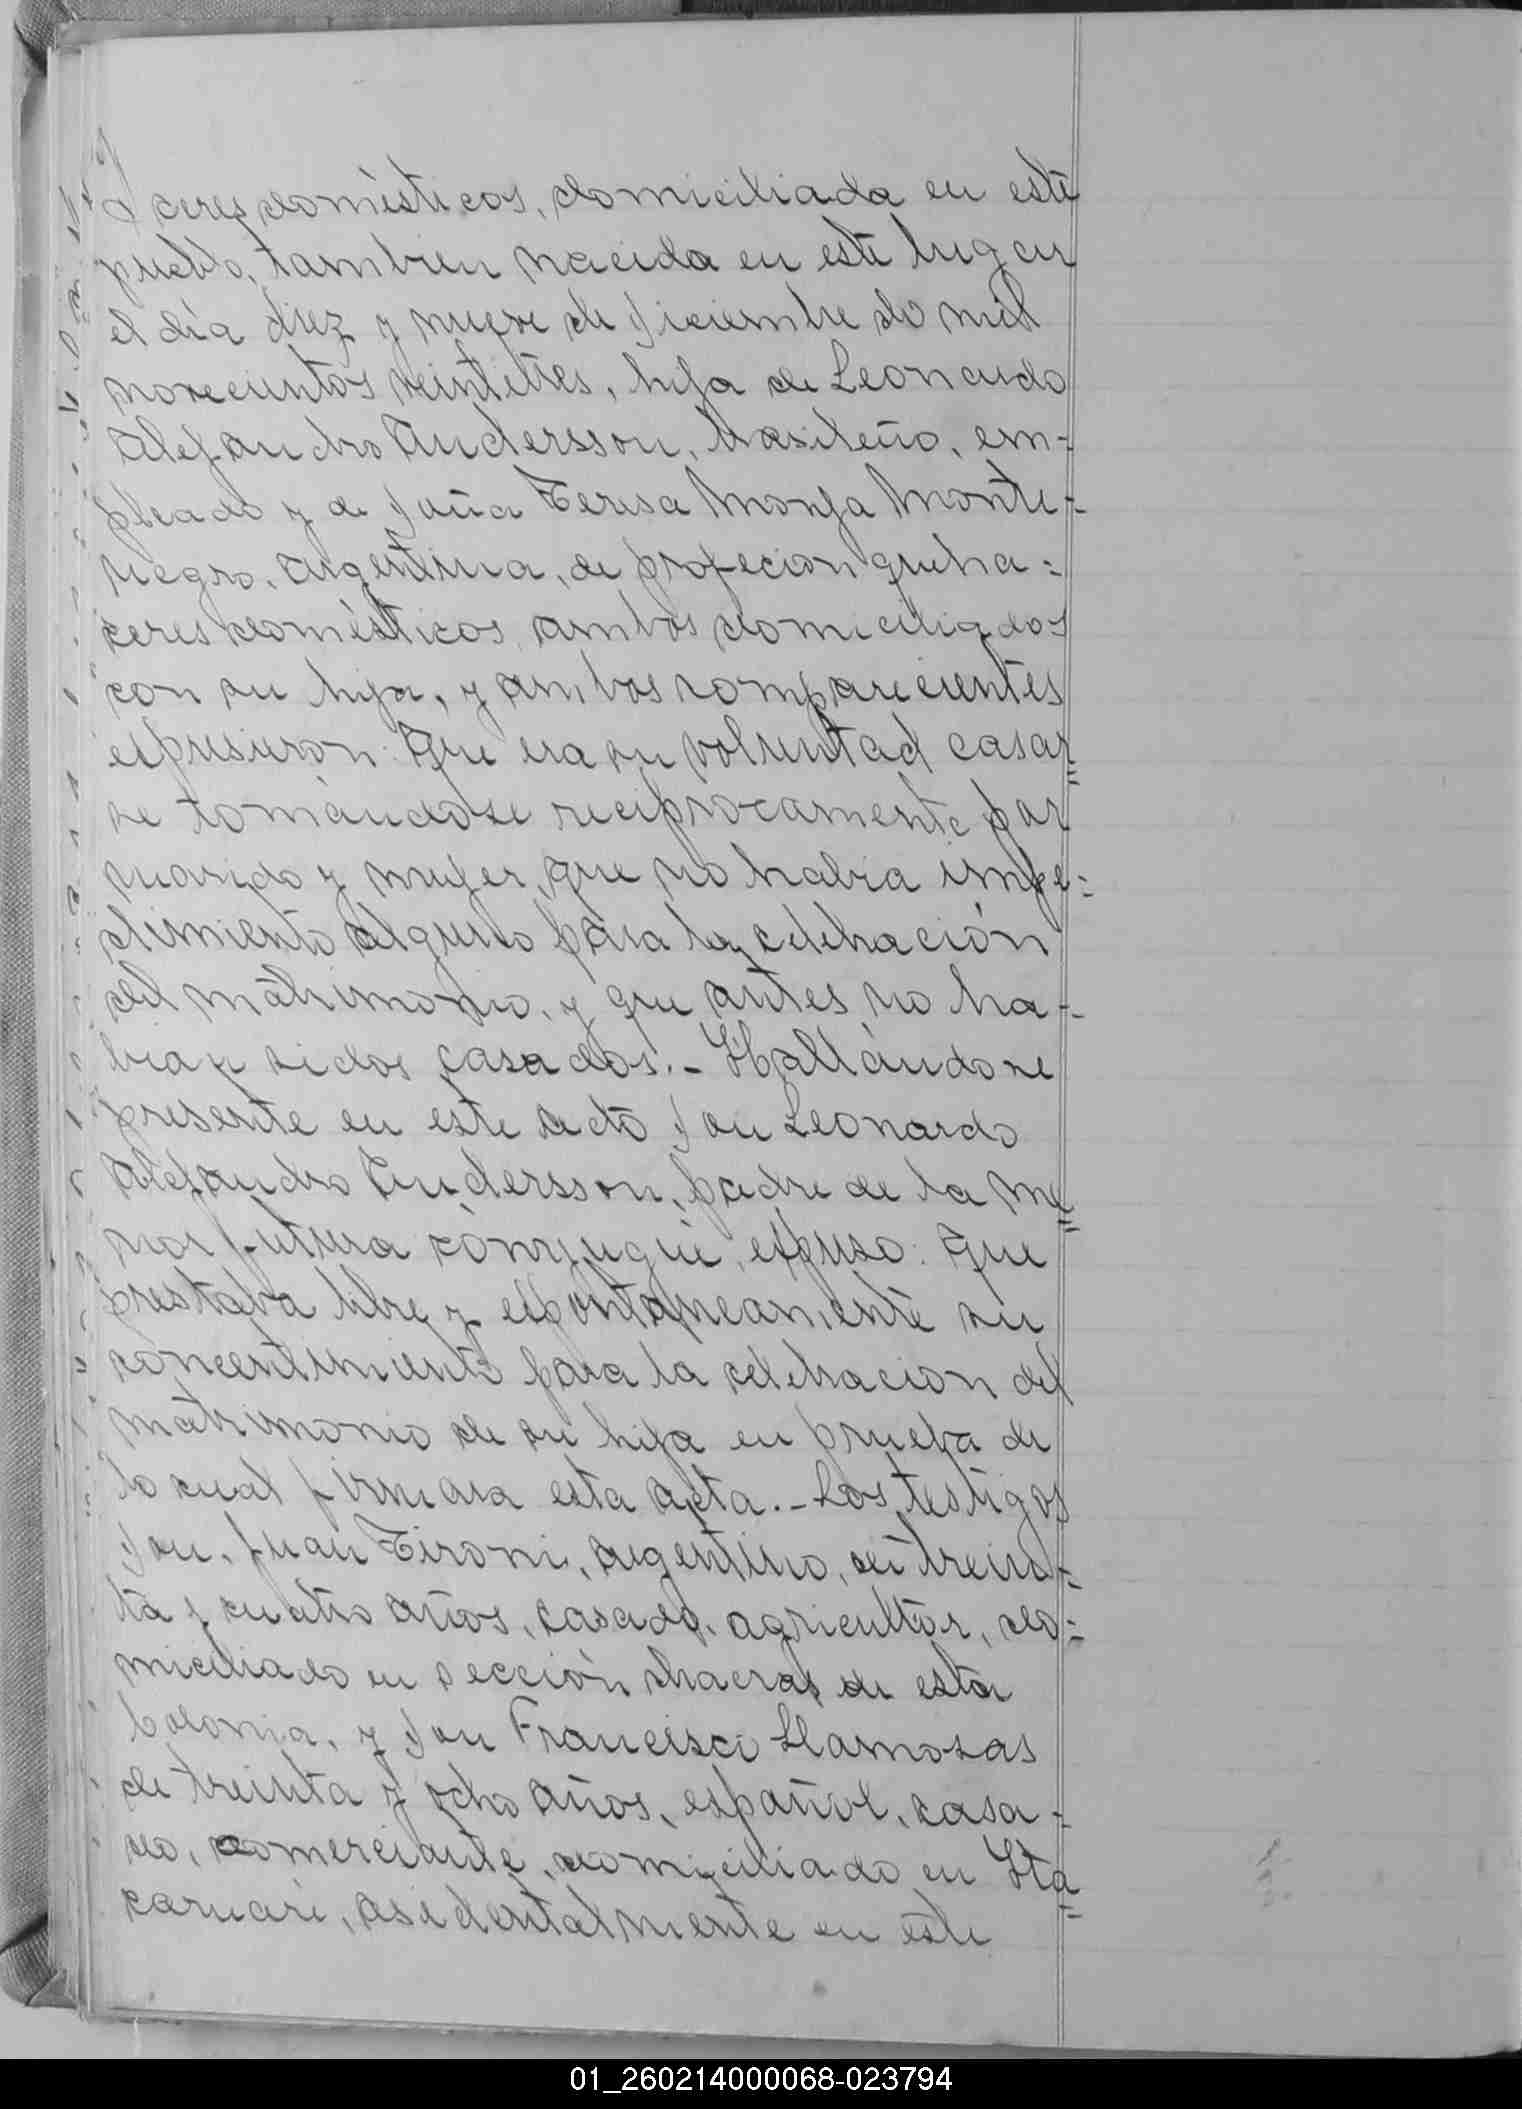 ceres domésticos, domiciliada en este
pueblo, tambien nacida en este lugar
el día diez y nueve de Diciembre do mil
novecientos veintitres, hija de Leonardo
Alejandro Andersson, brasileño, em-
pleado y de doña Teresa Monja Monte-
negro, argentina, de profecion queha=
ceres domésticos, ambos domiciliados
con su hija, y ambos comparecientes
espusieron: Que era su voluntad casar=
se tomándose reciprocamente por
marido y mujer, que no habia impe=
dimiento alguno para la celebración
del matrimonio, y que antes no ha-
bian sidos casados.- Hallándose
presente en este acto don Leonardo
Alejandro Andersson, padre de la me=
nor futura cónyugue, espuso: Que
prestaba libre y espontaneamente su
concentimiento para la celebracion del
matrimonio de su hija en prueba de
lo cual firmara esta acta.- Los testigos
don, Juan Tironi, argentino, de trein-
ta y cuatro años, casado, agricultor, do=
miciliado en sección chacras de esta
Colonia, y don Francisco Llamosas
de treinta y ocho años, español, casa-
do, comerciante, domiciliado en Ita=
caruaré, asidentalmente en este
01_260214000068-023794